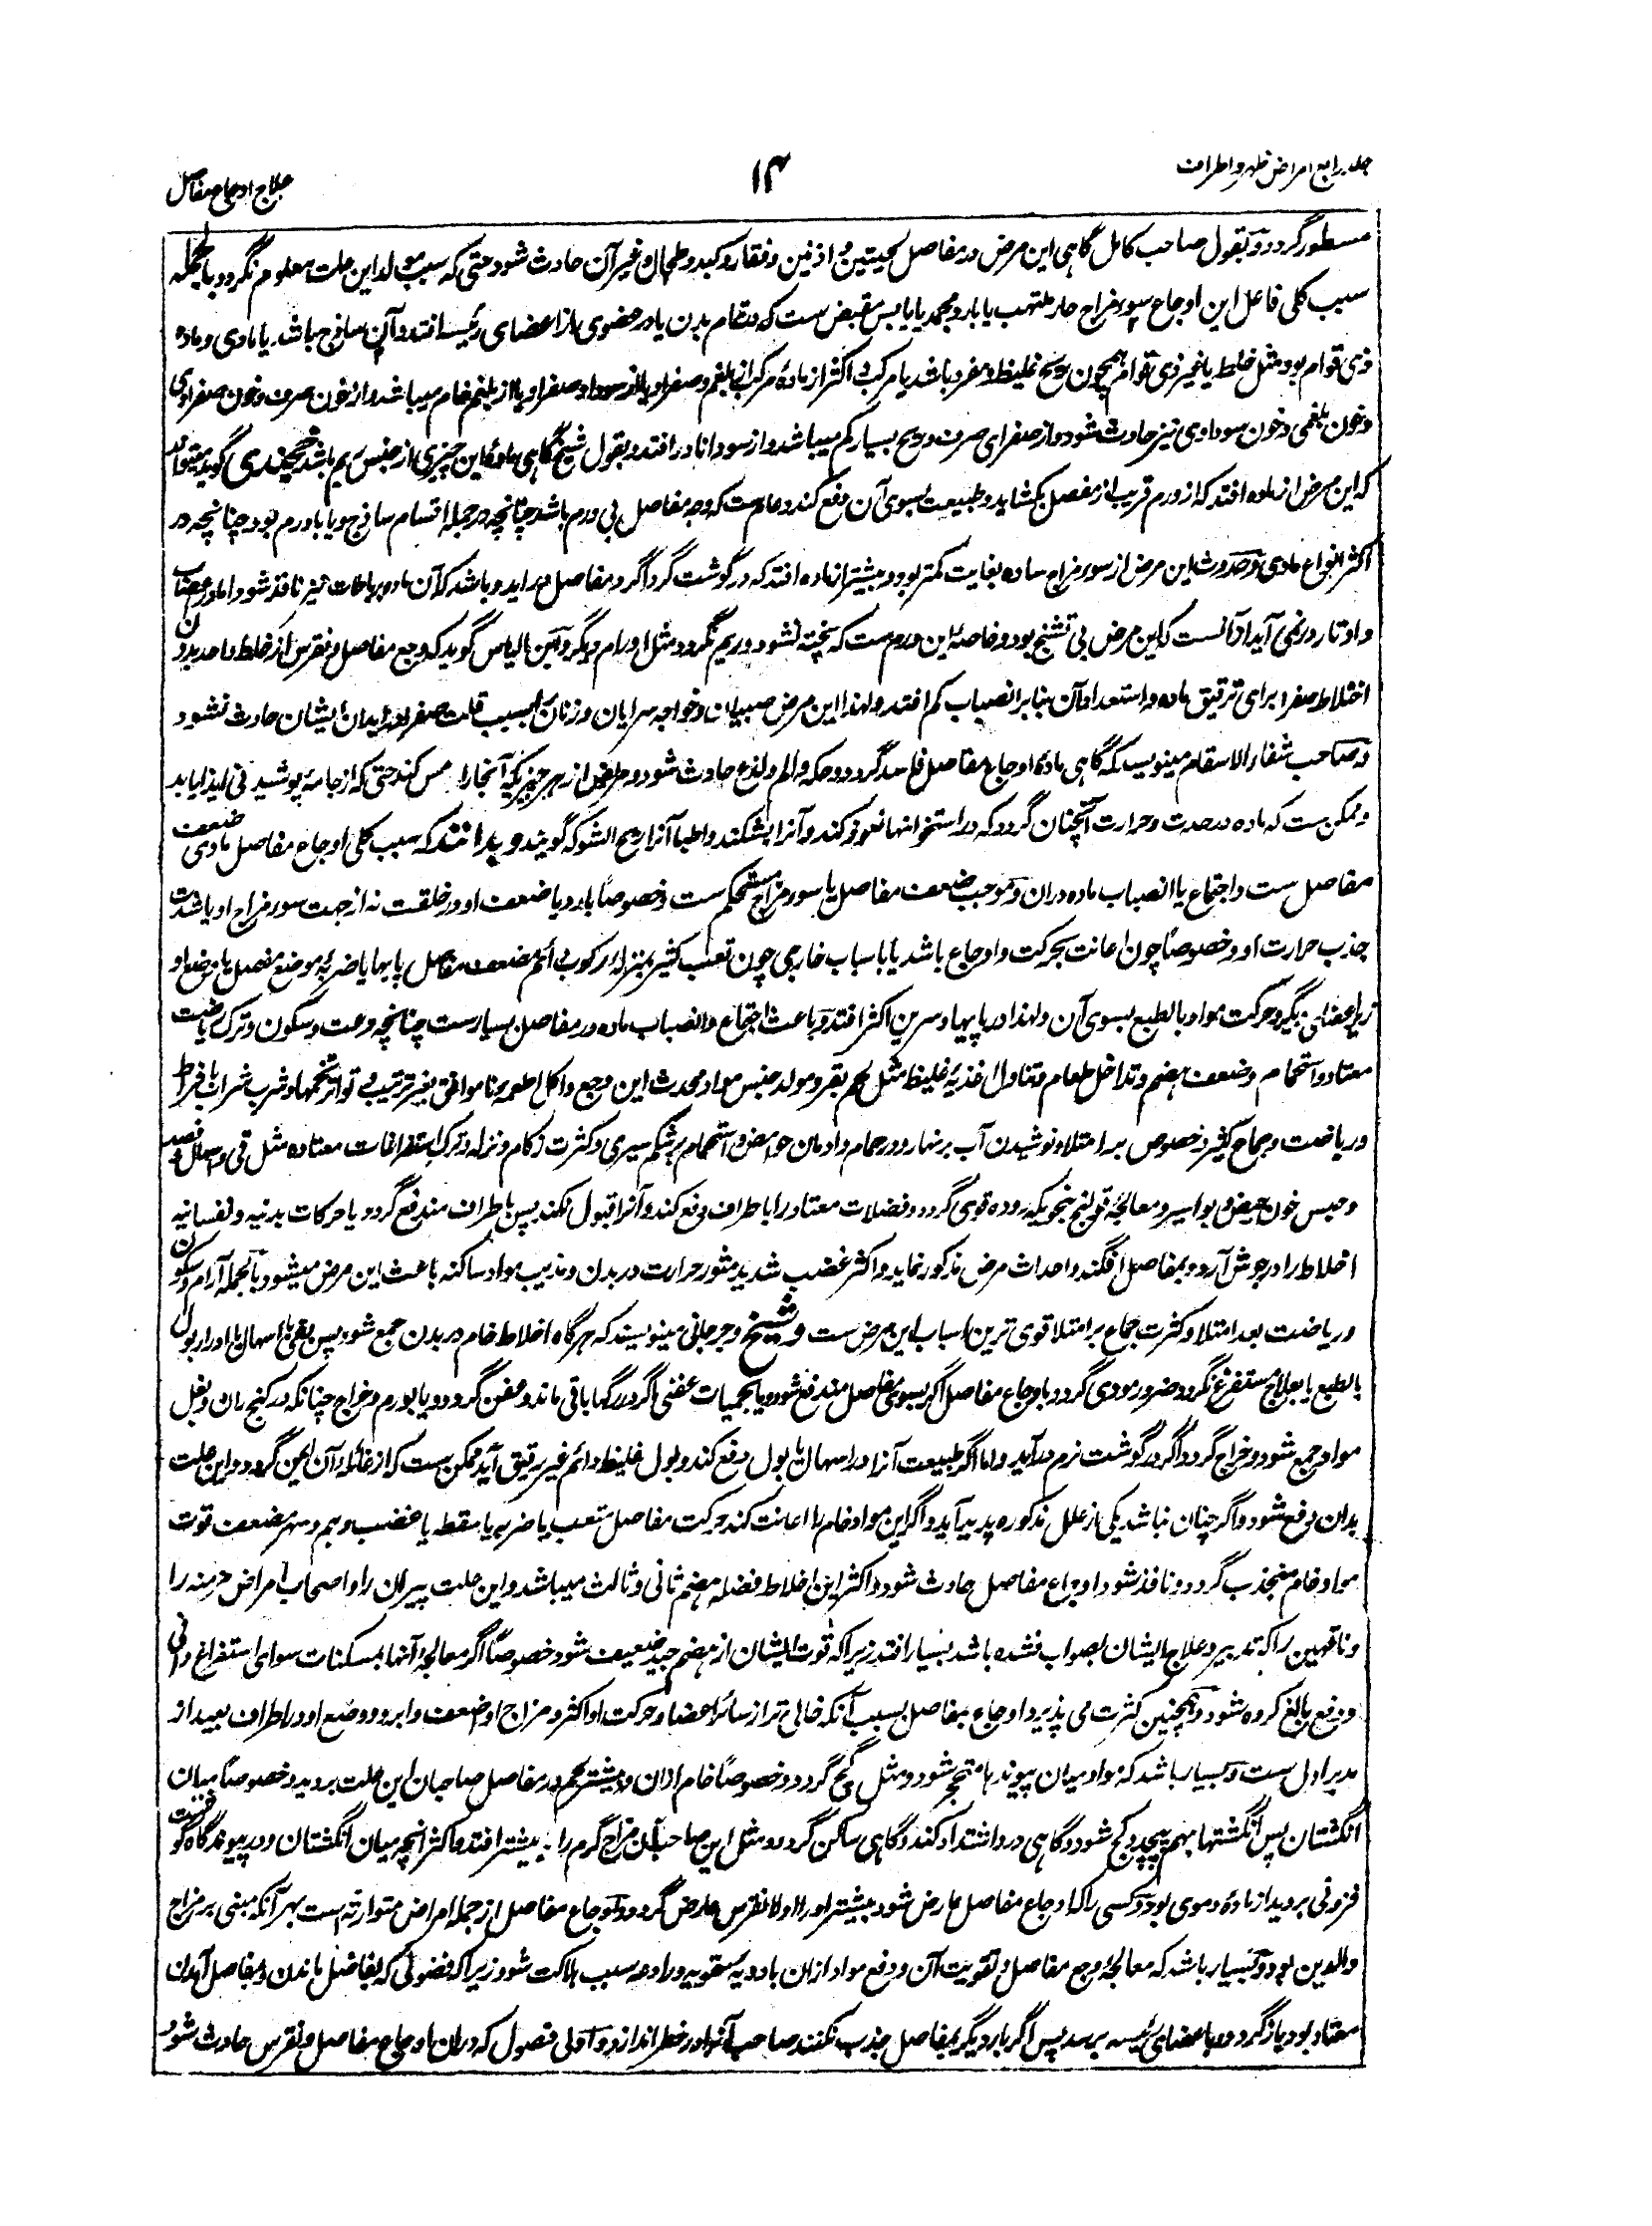 جلد رابع امراض ظهر و اطراف
۱۴
علاج اوجاع مفاصل
مسطور گردد و بقول صاحب کامل گاهی این مرض در مفاصل لحیتین و اذنین و فقار و کبد و طحال و غیر آن حادث شود حتی که سبب مولد این علت معلوم نگردد بالجمله
سبب کلی فاعل این اوجاع سوء مزاج حار ملتهب یا بارد مجمد یا یابس مقبض ست که در تمام بدن یا در عضوی از اعضای رئیسه افتد و آن ساذج باشد یا مادی و ماده
ذی قوام بود مثل خلط یا غیر ذی قوام همچون ریح غلیظ و مفرد باشد یا مرکب و اکثر از ماده مرکب از بلغم و صفرا و یا از سودا و صفرا و یا از بلغم خام میباشد و از خون صرف و خون صفراوی
و خون بلغمی و خون سوداوی نیز حادث شود و از صفرای صرف و ریح بسیار کم میباشد و از سودا نادر افتد و بقول شیخ گاهی ماده این چیزی از جنس ریم باشد خجندی گوید میتواند
که این مرض از ماده افتد که از ورم قریب از مفصل بکشاید و طبیعت بسوی آن دفع کند و عام ست که وجع مفاصل بی ورم باشد چنانچه در جمله اقسام ساذج و یا با ورم بود چنانچه در
اکثر انواع مادی و حدوث این مرض از سوء مزاج ساده بغایت کمتر بود و بیشتر از ماده افتد که در گوشت گرداگرد مفاصل در آید و باشد که آن ماده برباطات نیز نافذ شود اما در اعصاب
و اوتار در نمی آید و آنست که این مرض بی تشنج بود و خاصه این ورم ست که پخته نشود و ریم نگردد مثل اورام دیگر و ابن الیاس گوید که وجع مفاصل و نقرس از خلط واحد بدون
اختلاط صفرا برای ترقیق ماده و استعداد آن بنا بر انصباب کم افتد و لهذا این مرض صبیان و خواجه سرایان و زنان را بسبب قلت صفرا در ابدان ایشان حادث نشود
و صاحب شفاء الاسقام مینویسد که گاهی ماده اوجاع مفاصل فاسد گردد و حکه و الم و لذع حادث شود و مریض از هر چیزیکه آنجا را مس کند حتی که از جامه پوشیدنی ایذا یابد
و ممکن ست که ماده در حدت و حرارت آنچنان گردد که در استخوانها نفوذ کند و آنرا بشکند و اطبا آنرا ریح الشوکه گویند و بدانند که سبب کلی اوجاع مفاصل مادی ضعف
مفاصل ست و اجتماع یا انصباب ماده دران و موجب ضعف مفاصل یا سوء مزاج مستحکم ست و خصوصاً بارد یا ضعف او در خلقت نه از جهت سوء مزاج او یا شدت
جذب حرارت او و خصوصاً چون اعانت بحرکت و اوجاع باشد یا باسباب خارجی چون تعب کثیر بمنزله رکوب دائم مضعف مفاصل پایها یا ضربه بموضع مفصل یا وضع او
زیر اعضای دیگر و حرکت مواد بالطبع بسوی آن و لهذا در پایها و سرین اکثر افتد و باعث اجتماع و انصباب ماده در مفاصل بسیار ست چنانچه دعت و سکون و ترک ریاضت
معتاد و استحمام و ضعف هضم و تداخل طعام و تناول اغذیه غلیظ مثل لحم بقر و مولد جنس مواد محدث این وجع و اکل اطعمه ناموافق بغیر ترتیب و تواتر تخمها و شرب شراب بافراط
و ریاضت و جماع کثیر و خصوص بر امتلا و نوشیدن آب بر نهار و در حمام و ادمان حوامض و استحمام بر شکم سیری و کثرت زکام و نزله و ترک استفراغات معتاده مثل قی و اسهال و فصد
و حبس خون حیض و بواسیر و معالجه قولنج بنحویکه روده قوی گردد و فضلات معتاد را باطراف دفع کند و آنرا قبول نکند پس باطراف مندفع گردد یا حرکات بدنیه و نفسانیه
اخلاط را در جوش آرد و بمفاصل افگند و احداث مرض مذکور نماید و اکثر غضب شدید مثور حرارت در بدن و مذیب مواد ساکنه باعث این مرض میشود بالجمله آرام و سکون
و ریاضت بعد امتلا و کثرت جماع بر امتلا قوی ترین اسباب این مرض ست و شیخ و جرجانی مینویسند که هرگاه اخلاط خام در بدن جمع شود پس بقی یا اسهال یا ادرار بول
بالطبع یا بعلاج مستفرغ نگردد ضرور مودی گردد باوجاع مفاصل اگر بسوی مفاصل مندفع شود و یا بحمیات عفنی اگر در رگها باقی ماند و عفن گردد و یا بورم و خراج چنانکه در کنج ران و بغل
مواد جمع شود و خراج گردد اگر در گوشت نرم در آید و اما اگر طبیعت آنرا در اسهال یا بول دفع کند و بول غلیظ دائم غیر رقیق آید ممکن ست که از غائله آن ایمن گردد و این علت
بدان دفع شود و اگر چنان نباشد یکی از علل مذکوره پدید آید و اگر این مواد خام را اعانت کند حرکت مفاصل متعب یا ضربه یا سقطه یا غضب و هم و سهر مضعف قوت
مواد خام منجذب گردد و نافذ شود اوجاع مفاصل حادث شود و اکثر این اخلاط فضله هضم ثانی و ثالث میباشد و این علت پیران را و اصحاب امراض مزمنه را
و ناقهین را که تدبیر و علاج ایشان بصواب نشده باشد بسیار افتد زیرا که قوت ایشان از هضم جید ضعیف شود خصوصاً اگر معالجه آنها بمسکنات سوای استفراغ وافی
و دفع بالغ کرده شود و همچنین کثرت می پذیرد اوجاع مفاصل بسبب آنکه خالی تر از سائر اعضا و حرکت او اکثر و مزاج او اضعف و ابرد و وضع او در اطراف بعید از
مدبر اول ست و بسیار باشد که مواد میان پیوندها متحجر شود و مثل گچ گردد و خصوصاً خام ازان و بیشتر لحم در مفاصل صاحبان این علت بروید و خصوصاً میان
انگشتان پس انگشتها بهم پیچد و کج شود و گاهی درد اشتداد کند و گاهی ساکن گردد و مثل این صاحبان مزاج گرم را بیشتر افتد و اکثر آنچه میان انگشتان و در پیوندگاه گوشت
فزونی بروید از ماده دموی بود و کسی را که اوجاع مفاصل عارض شود بیشتر او را اولاً نقرس عارض گردد و اوجاع مفاصل از جمله امراض متوارثه است بهر آنکه مبنی بر مزاج
والدین بود و بسیار باشد که معالجه وجع مفاصل و تقویت آن و دفع مواد ازان بادویه مقویه و رادعه سبب هلاکت شود زیرا که فضولی که بمفاصل ماندن و بمفاصل آمدن
معتاد بود باز گردد و باعضای رئیسه برسد پس اگر بار دیگر بمفاصل جذب نکنند صاحب آنرا در خطر اندازد و اولی فصول که دران اوجاع مفاصل و نقرس حادث شود